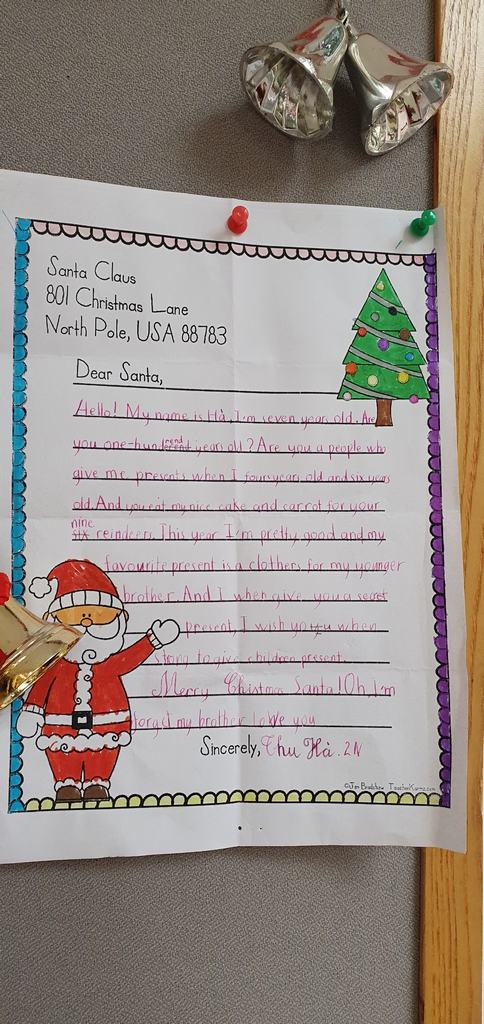 Santa Claus
801 Christmas Lane
North Pole, USA 88783
Dear Santa,
Hello! My name is Hà, I'm seven years old. Are
you one-hundered years old? Are you a people who
give me presents when I four years old and six years
old. And you eat my nice cake and carrot for your
nine
six reindeers. This year I'm pretty good and my
favourite present is a clothers for my younger
brother. And I when give you a secret
present, I wish you when
strong to give children present.
Merry Christmas Santa! Oh, I'm
forget my brother loWe you
Sincerely, Thu Hà. 2N
©Jen Bradshaw TeacherKarma.com